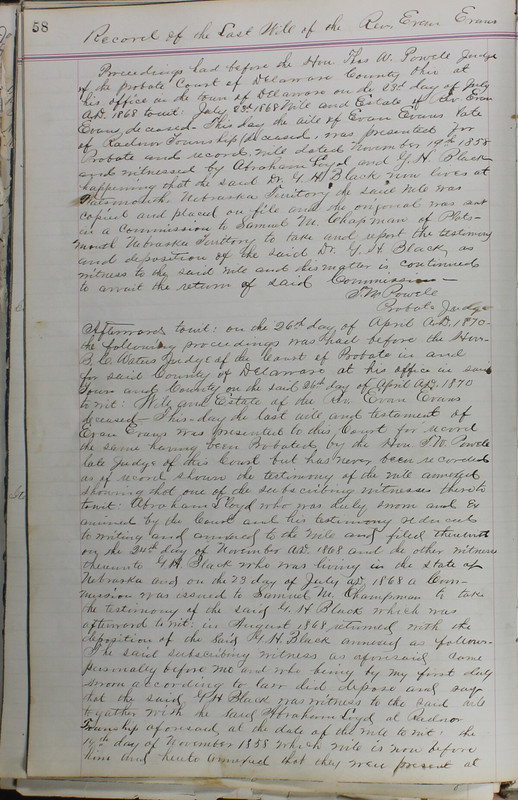 58
Record of the Last Will of the Rev. Evan Evans
Proceedings had before the Hon Thos W. Powell Judge
of the Probate Court of Delaware County Ohio at
his office in the town of Delaware on the 23d day of July
A.D. 1868 towit: July 23d 1868 Will and Estate of Rev Evan
Evans deceased This day the will of Evan Evans late
of Radnor Township deceased, was presented for
Probate and record, will dated November 19th 1858
and witnessed by Abraham Loyd and G. H. Black
happening that the said Dr. G. H. Black now lives at
Plattsmouth Nebraska Territory the said will was
copied and placed on file and the original was sent
in a Commission to Samuel M. Chapman of Plats-
mouth Nebraska Territory to take and report the testimony
and deposition of the said Dr. G. H. Black as
witness to the said will and this matter is continued
to await the return of said Commission
T. W. Powell
Probate Judge
Afterwards towit: on the 26th day of April A.D. 1870
the following proceedings was had before the Hon.
B. C. Waters Judge of the Court of Probate in and
for said County of Delaware at his office in said
Town and County on the said 26th day of April A.D. 1870
towit: Will and Estate of the Rev Evan Evans
deceased This day the last will and testament of
Evan Evans was presented to this Court for record
the same having been Probated by the Hon. T. W. Powell
late Judge of this Court but has never been recorded
as of record shown the testimony of the will annexed
showing that one of the subscribing witnesses thereto
towit: Abraham Lloyd who was duly sworn and Ex
amined by the Court and his testimony reduced
to writing and annexed to the will and filed therewith
on the 24th day of November A.D. 1868 and the other witness
thereunto G. H. Black who was living in the state of
Nebraska and on the 23 day of July A.D. 1868 a Com-
mission was issued to Samuel M. Champman to take
the testimony of the said G. H. Black which was
afterward towit: in August 1868 returned with the
deposition of the said G. H. Black annexed as follows-
The said subscribing witness as aforesaid came
personally before me and who being by me first duly
sworn according to law did depose and say
that the said G. H. Black was witness to the said will
together with the said Abraham Loyd at Radnor
Township aforesaid at the date of the will to wit: the
19th day of November 1858 which will is now before
him and hereto annexed that they were present at